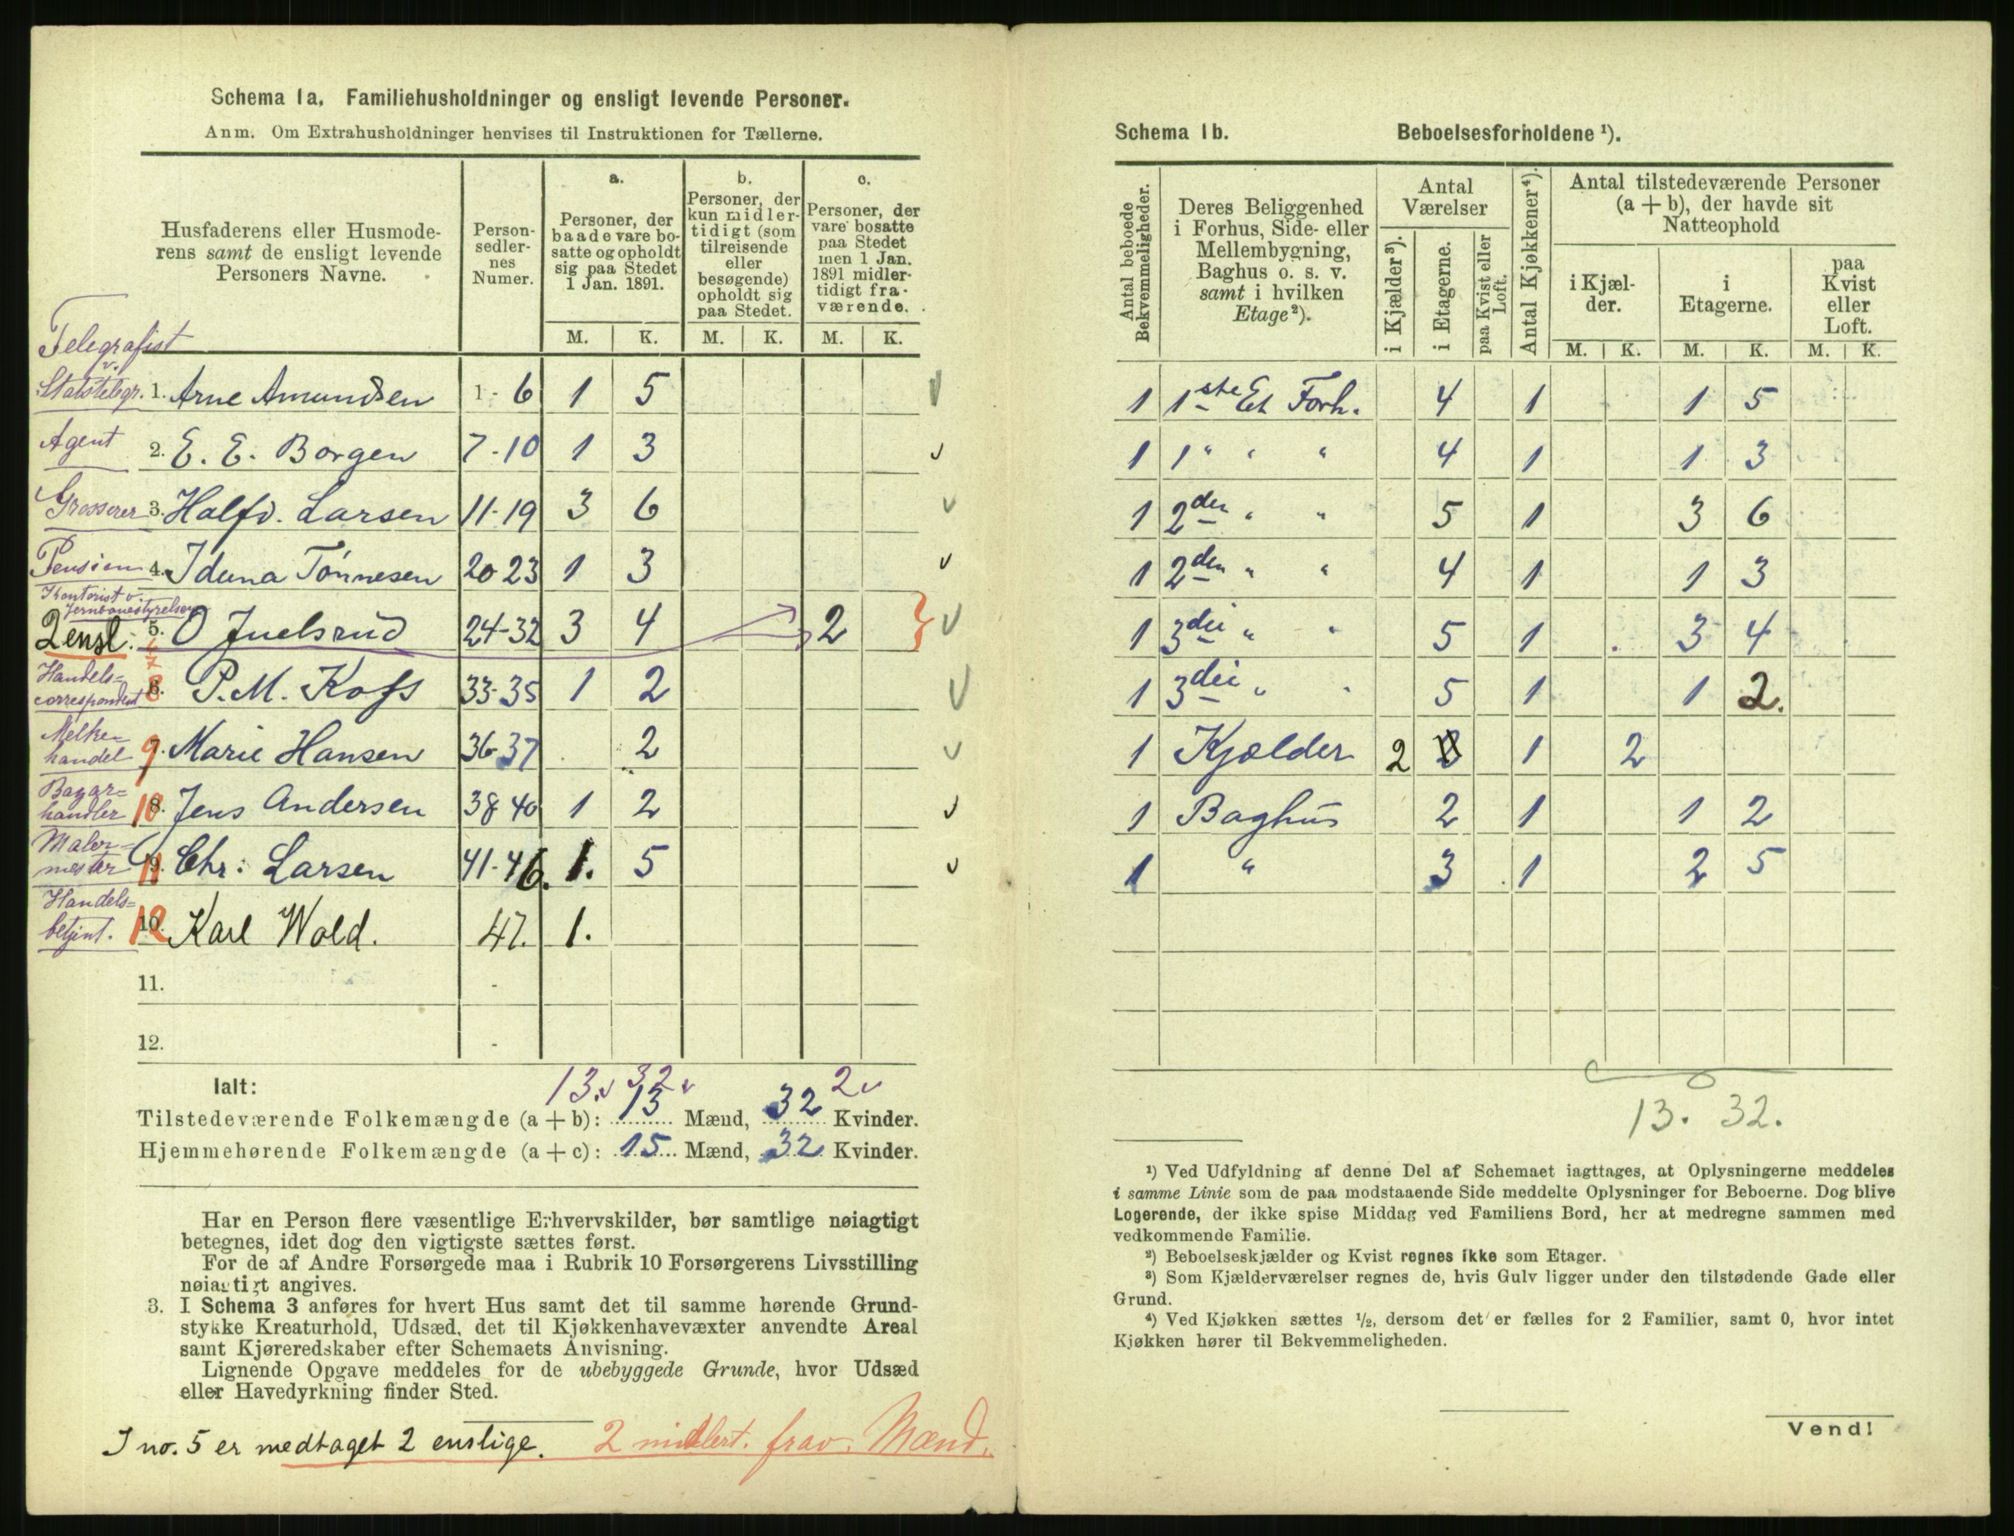 Schema 1a. Familiehusholdninger og ensligt levende Personer.
Anm. Om Extrahusholdninger henvises til Instruktionen for Tællerne.
Husfaderens eller Husmode-
rens samt de ensligt levende
Personers Navne.
Person-
sedler-
nes
Numer.
a.
Personer, der
baade vare bo-
satte og opholdt
sig paa Stedet
1 Jan. 1891.
b.
Personer, der
kun midler-
tidigt (som
tilreisende
eller
besøgende)
opholdt sig
paa Stedet.
c.
Personer, der
vare bosatte
paa Stedet
men 1 Jan.
1891 midler-
tidigt fra-
værende.
M. K. M. K. M. K.
Telegrafist
v.
Statstelegr. 1. Arne Amundsen 1-6 1 5
Agent 2. E. E. Borgen 7-10 1 3
Grosserer 3. Halfd. Larsen 11-19 3 6
Pension 4. Iduna Tönnesen 20-23 1 3
Kontorist v.
Jernbanestyrelsen
2 ensl: 5. O Juelsrud 24-32 3 4 2
6
7
Handels=
correspondent 8 6. P. M. Koss 33-35 1 2
Melke=
handel 9 7. Marie Hansen 36-37 2
Bazar=
handler 10 8. Jens Andersen 38-40 1 2
Maler=
mester 11 9. Chr: Larsen 41-46. 1. 5
Handels=
betjent. 12 10. Karl Wold. 47. 1.
11. -
12. -
Ialt: 13. 32 2
Tilstedeværende Folkemængde (a + b): 13 Mænd, 32 Kvinder.
Hjemmehørende Folkemængde (a + c): 15 Mænd, 32 Kvinder.
Har en Person flere væsentlige Erhvervskilder, bør samtlige nøiagtigt
betegnes, idet dog den vigtigste sættes først.
For de af Andre Forsørgede maa i Rubrik 10 Forsørgerens Livsstilling
nøiagtigt angives.
3. I Schema 3 anføres for hvert Hus samt det til samme hørende Grund-
stykke Kreaturhold, Udsæd, det til Kjøkkenhavevæxter anvendte Areal
samt Kjøreredskaber efter Schemaets Anvisning.
Lignende Opgave meddeles for de ubebyggede Grunde, hvor Udsæd
eller Havedyrkning finder Sted.
I no. 5 er medtaget 2 enslige. 2 midlert. frav. Mænd.
Schema 1b. Beboelsesforholdene ¹).
Antal beboede
Bekvemmeligheder.
Deres Beliggenhed
i Forhus, Side- eller
Mellembygning,
Baghus o. s. v.
samt i hvilken
Etage²).
Antal
Værelser
i Kjælder³).
i Etagerne.
paa Kvist eller
Loft.
Antal Kjøkkener⁴).
Antal tilstedeværende Personer
(a + b), der havde sit
Natteophold
i Kjæl-
der.
i
Etagerne.
paa
Kvist
eller
Loft.
M. K. M. K. M. K.
1 1ste Et Forh. 4 1 1 5
1 1 " " " 4 1 1 3
1 2den " " 5 1 3 6
1 2den " " 4 1 1 3
1 3die " " 5 1 3 4
1 3die " " 5 1 1 2.
1 Kjælder 2 1 2
1 Baghus 2 1 1 2
1 " 3 1 2 5
13. 32.
¹) Ved Udfyldning af denne Del af Schemaet iagttages, at Oplysningerne meddeles
i samme Linie som de paa modstaaende Side meddelte Oplysninger for Beboerne. Dog blive
Logerende, der ikke spise Middag ved Familiens Bord, her at medregne sammen med
vedkommende Familie.
²) Beboelseskjælder og Kvist regnes ikke som Etager.
³) Som Kjælderværelser regnes de, hvis Gulv ligger under den tilstødende Gade eller
Grund.
⁴) Ved Kjøkken sættes ½, dersom det er fælles for 2 Familier, samt 0, hvor intet
Kjøkken hører til Bekvemmeligheden.
Vend!